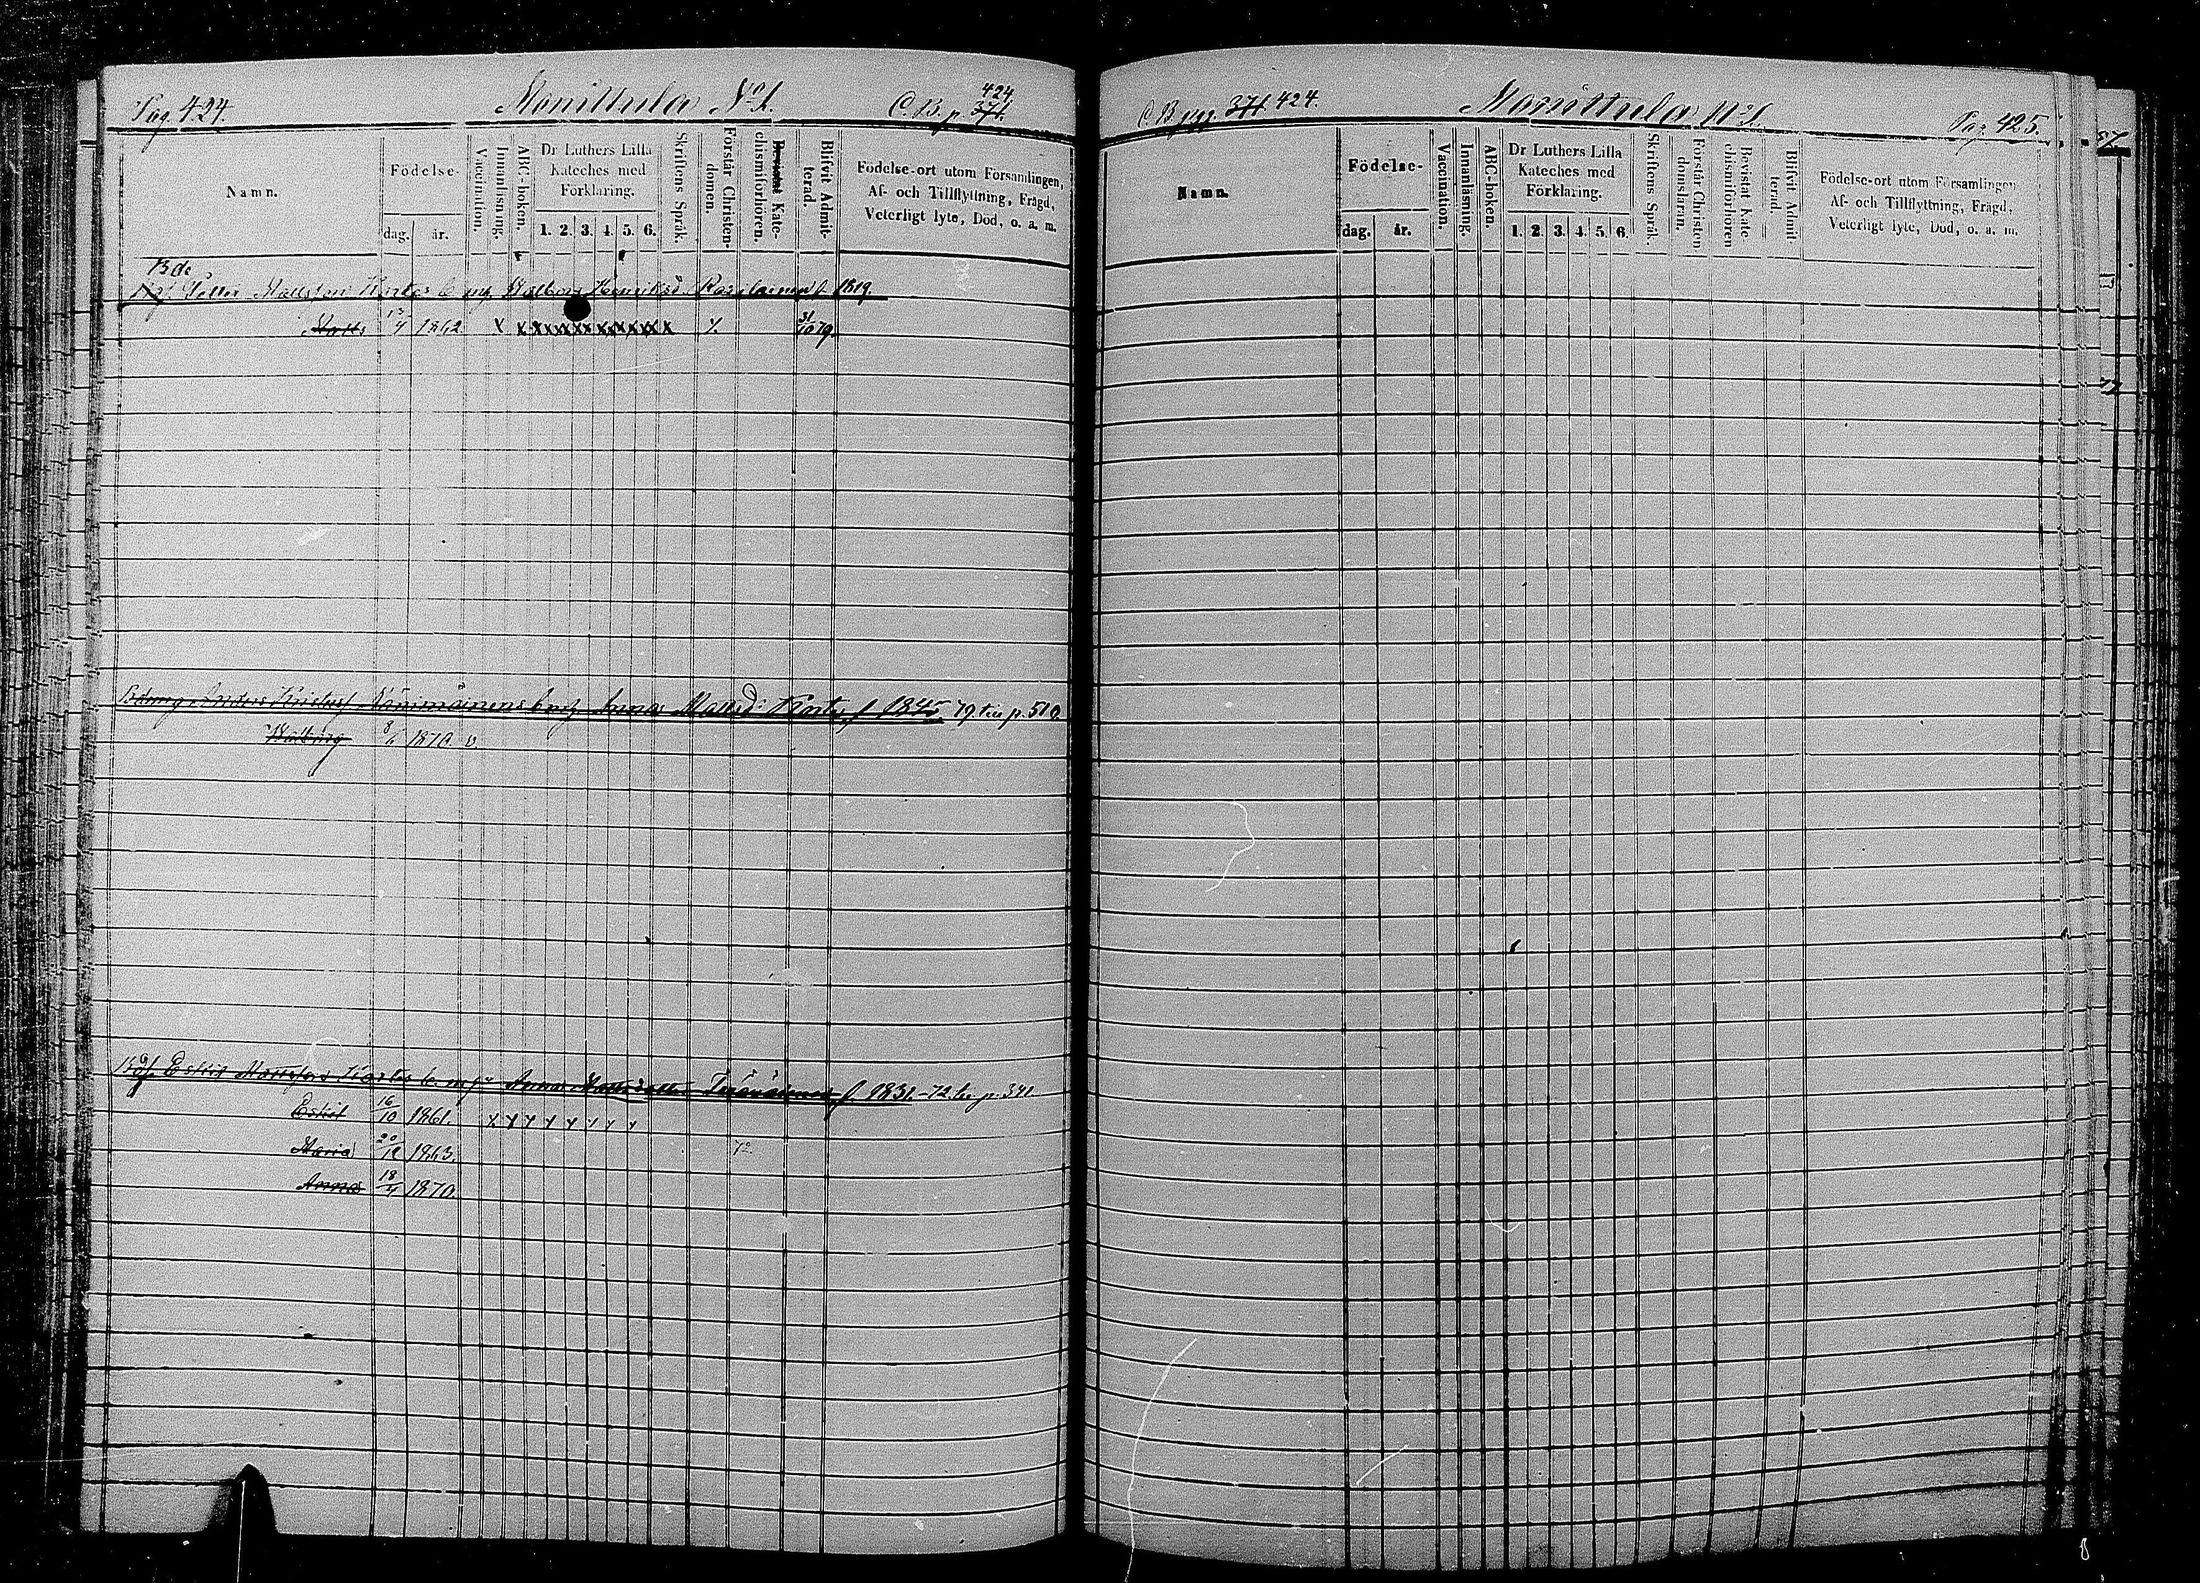 Pag. 424.
Manittula No 1.
424
C. B. p. 371.
Namn.
Födelse-
dag. år.
Vaccination.
Innanläsning.
ABC-boken.
Dr Luthers Lilla
Kateches med
Förklaring.
1. 2. 3. 4. 5. 6.
Skriftens Språk.
Förstår Christen-
domen.
Bevistat Kate-
chismiförhören.
Blifvit Admit-
terad.
Födelse-ort utom Församlingen,
Af- och Tillflyttning, Frägd,
Veterligt lyte, Död, o. a. m.
Bde
Petter Mattsson h. f. 1819
Matts 13/4 1862 x x x x x x x x x x x x x 31/10 79.
Anders h. m. h. Anna Mattsd: f. 1845 79 till p. 510
Walborg 8/6 1870. v.
Eskil Mattsson h. m. h. Anna Mattsdotter f. 1831 - 72 till p. 341.
Eskil 16/10 1861. x x x x x x x x
Maria 20/12 1863. 72.
Anna 18/4 1870.
C. B. pag. 371 424.
Manittula No 1.
Pag. 425.
Namn.
Födelse-
dag. år.
Vaccination.
Innanläsning.
ABC-boken.
Dr Luthers Lilla
Kateches med
Förklaring.
1. 2. 3. 4. 5. 6.
Skriftens Språk.
Förstår Christen-
domsläran.
Bevistat Kate
chismiförhören
Blifvit Admit
terad.
Födelse-ort utom Församlingen
Af- och Tillflyttning, Frägd,
Veterligt lyte, Död, o. a. m.